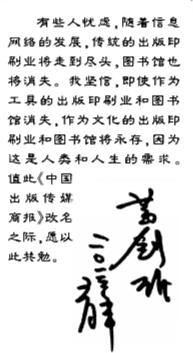 有些人忧虑，随着信息
网络的发展，传统的出版印
刷业将走到尽头，图书馆也
将消失。我坚信，即使作为
工具的出版印刷业和图书
馆消失，作为文化的出版印
刷业和图书馆将永存，因为
这是人类和人生的需求。
值此《中国
出版传媒
商报》改名
之际，愿以
此共勉。